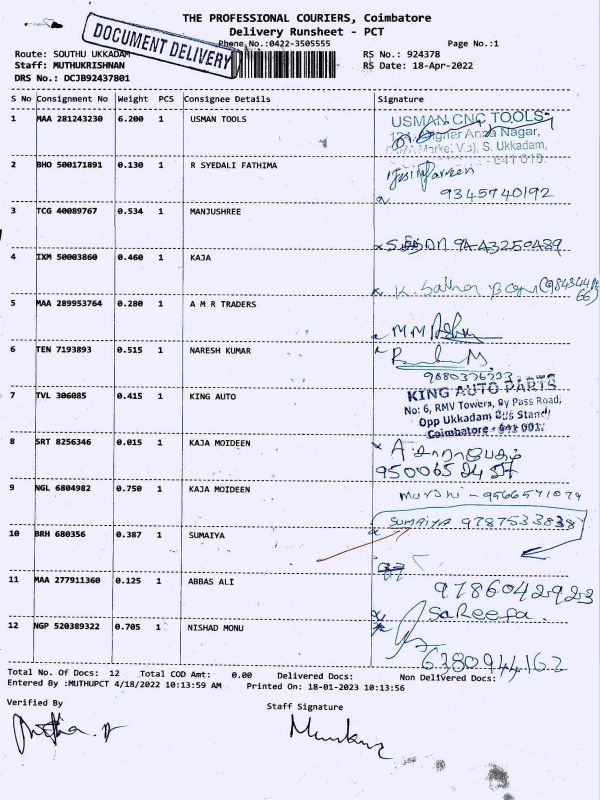 THE PROFESSIONAL COURIERS, Coimbatore
Delivery Runsheet - PCT
DOCUMENT DELIVERY
Phone No.:0422-3505555 Page No.:1
Route: SOUTHU UKKADAM RS No.: 924378
Staff: MUTHUKRISHNAN RS Date: 18-Apr-2022
DRS No.: DCJB92437801
S No Consignment No Weight PCS Consignee Details Signature
1 MAA 281243230 6.200 1 USMAN TOOLS
USMAN CNC TOOLS
Anna Nagar,
S. Ukkadam,
2 BHO 500171891 0.130 1 R SYEDALI FATHIMA
9345740192
3 TCG 40089767 0.534 1 MANJUSHREE
4 IXM 50003860 0.460 1 KAJA
5 MAA 289953764 0.280 1 A M R TRADERS
6 TEN 7193893 0.515 1 NARESH KUMAR
7 TVL 306085 0.415 1 KING AUTO
KING AUTO PARTS
No: 6, RMV Towers, By Pass Road,
Opp Ukkadam Bus Stand,
Coimbatore - 641 001.
8 SRT 8256346 0.015 1 KAJA MOIDEEN
9 NGL 6804982 0.750 1 KAJA MOIDEEN
10 BRH 680356 0.387 1 SUMAIYA
SUMAIYA 9787533838
11 MAA 277911360 0.125 1 ABBAS ALI
9786042923
Sareefa.
12 NGP 520389322 0.705 1 NISHAD MONU
6380944162
Total No. Of Docs: 12 Total COD Amt: 0.00 Delivered Docs: Non Delivered Docs:
Entered By :MUTHUPCT 4/18/2022 10:13:59 AM Printed On: 18-01-2023 10:13:56
Verified By Staff Signature